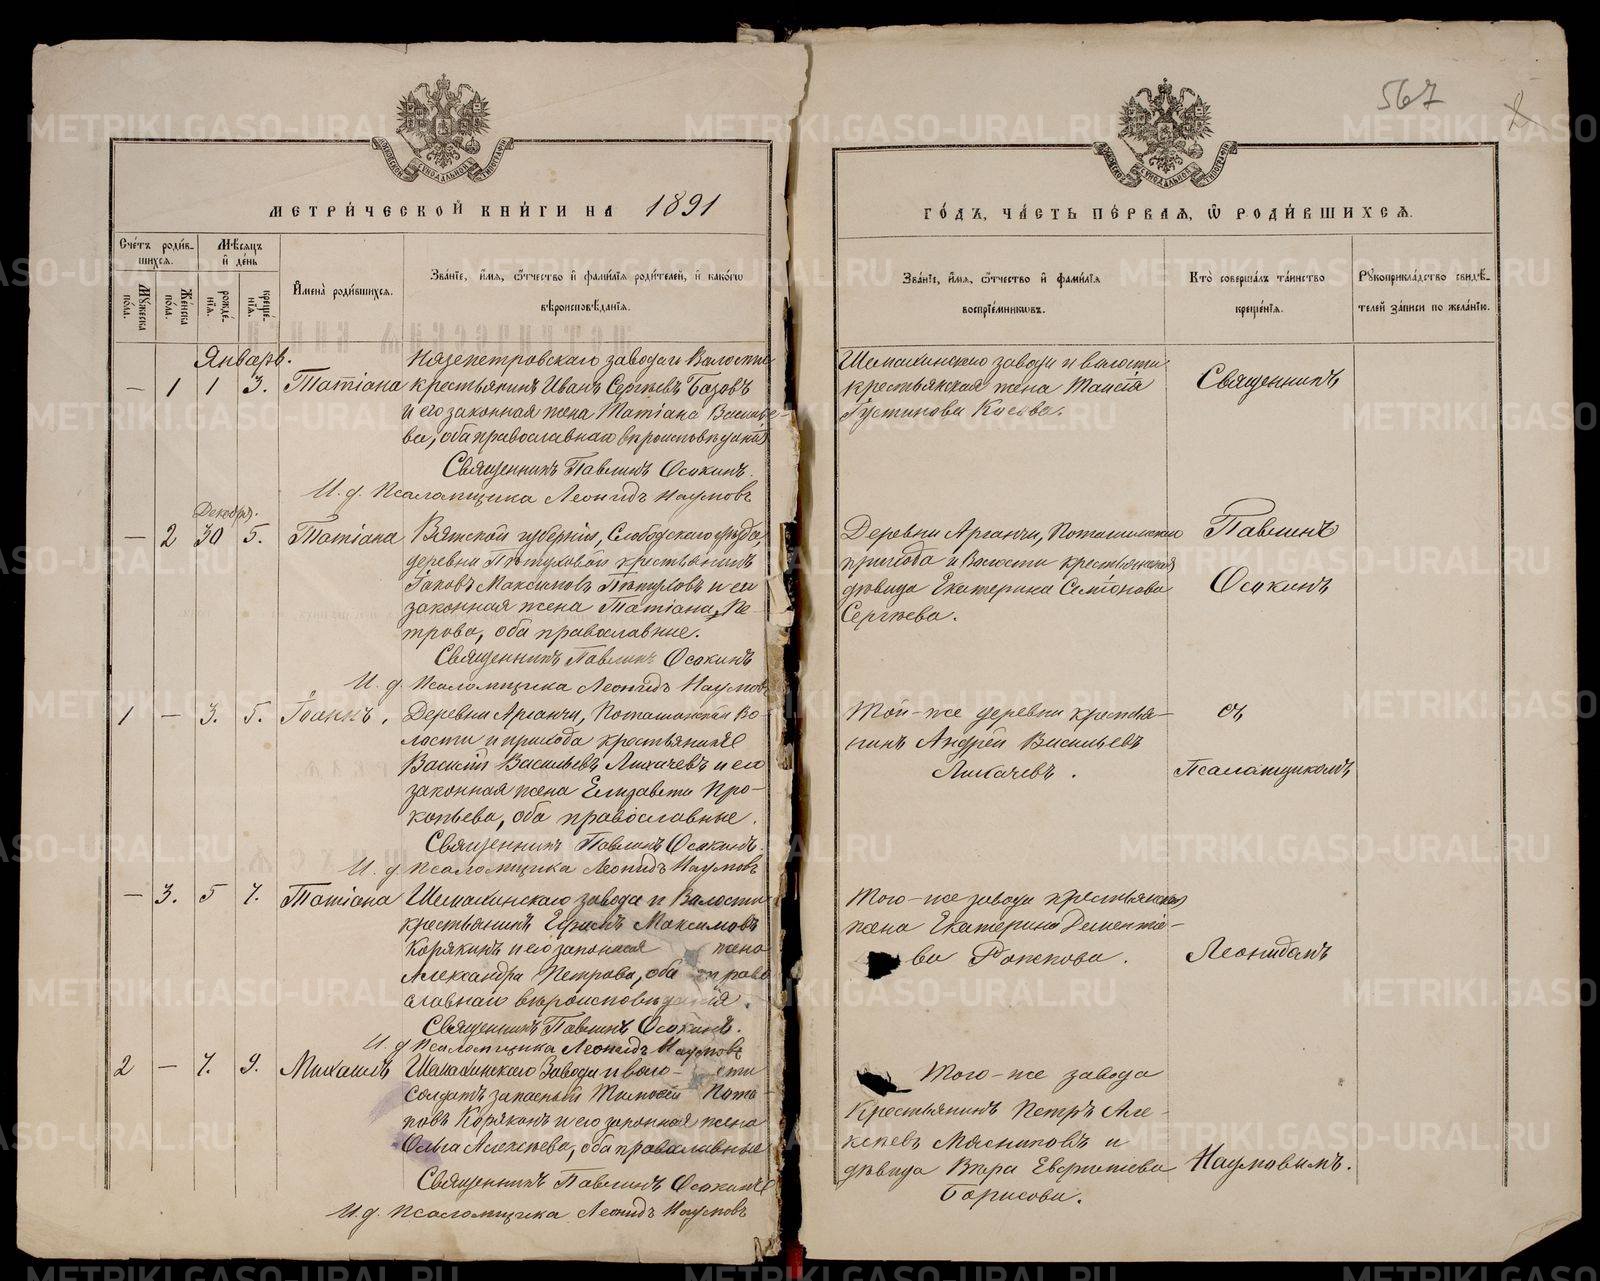 567
2
МЕТРИ́ЧЕСКОЙ КНИ́ГИ НА 1891
ГО́ДЪ, ЧА́СТЬ ПЕ́РВАЯ, Ѡ РОДИ́ВШИХСЯ.
Сче́тъ роди́в-
шихся.
Мѣ́сяцъ
и҆ де́нь
И҆мена̀ роди́вшихся.
Зва́нїе, и҆́мя, ѻ҆́тчество и҆ фами́лїя роди́телей, и҆ како́гѡ
вѣроисповѣ́данїя.
Му́жеска
по́ла.
Же́нска
по́ла.
рожде́-
нїя.
креще́-
нїя.
Зва́нїе, и҆́мя, ѻ҆́тчество и҆ фами́лїя
воспрїе́мниковъ.
Кто̀ соверша́лъ та́инство
креще́нїя.
Рꙋкоприкла́дство свидѣ́-
телей за́писи по жела́нїю.
Январь.
— 1 1 3. Татіана
Нязепетровскаго завода и Волости
крестьянинъ Иванъ Сергѣевъ Базовъ
и его законная жена Татіана Василье-
ва, оба православнаго вѣроисповѣданія
Священникъ Павлинъ Осокинъ.
И. д. Псаломщика Леонидъ Наумовъ
Шемахинскаго завода и волости
крестьянская жена Таисія
Густинова Косова.
Священникъ
Декабря.
— 2 30 5. Татіана
Вятской губерніи, Слободскаго уѣзда,
деревни Пѣтуховой крестьянинъ
Іаковъ Максимовъ Пѣтуховъ и его
законная жена Татіана Пе-
трова, оба православные.
Священникъ Павлинъ Осокинъ
И. д. Псаломщика Леонидъ Наумовъ
Деревни Арганчи, Поташинскаго
прихода и Волости крестьянская
дѣвица Екатерина Семіонова
Сергѣева.
Павлинъ
Осокинъ
1 — 3. 5. Іоаннъ.
Деревни Арганчи, Поташинской Во-
лости и прихода крестьянинъ
Василій Васильевъ Лихачевъ и его
законная жена Елизавета Про-
копьева, оба православные.
Священникъ Павлинъ Осокинъ.
И. д. Псаломщика Леонидъ Наумовъ
Той-же деревни крестья-
нинъ Андрей Васильевъ
Лихачевъ.
съ
Псаломщикомъ
— 3. 5 7. Татіана
Шемахинскаго завода и Волости
крестьянинъ Ефимъ Максимовъ
Корякинъ и его законная жена
Александра Петрова, оба право
славнаго вѣроисповѣданія.
Священникъ Павлинъ Осокинъ.
И. д. Псаломщика Леонидъ Наумовъ
Того-же завода крестьянская
жена Екатерина Дементіе-
ва Рожкова.
Леонидомъ
2 — 7. 9. Михаилъ
Шемахинскаго Завода и воло- сти
солдатъ запасный Тимофей Пота-
повъ Корякинъ и его законная жена
Ольга Алексѣева, оба православные
Священникъ Павлинъ Осокинъ
И. д. Псаломщика Леонидъ Наумовъ
Того-же завода
Крестьянинъ Петръ Але-
ксѣевъ Мясниковъ и
дѣвица Вѣра Евфиміева
Борисова.
Наумовымъ.
METRIKI.GASO-URAL.RU